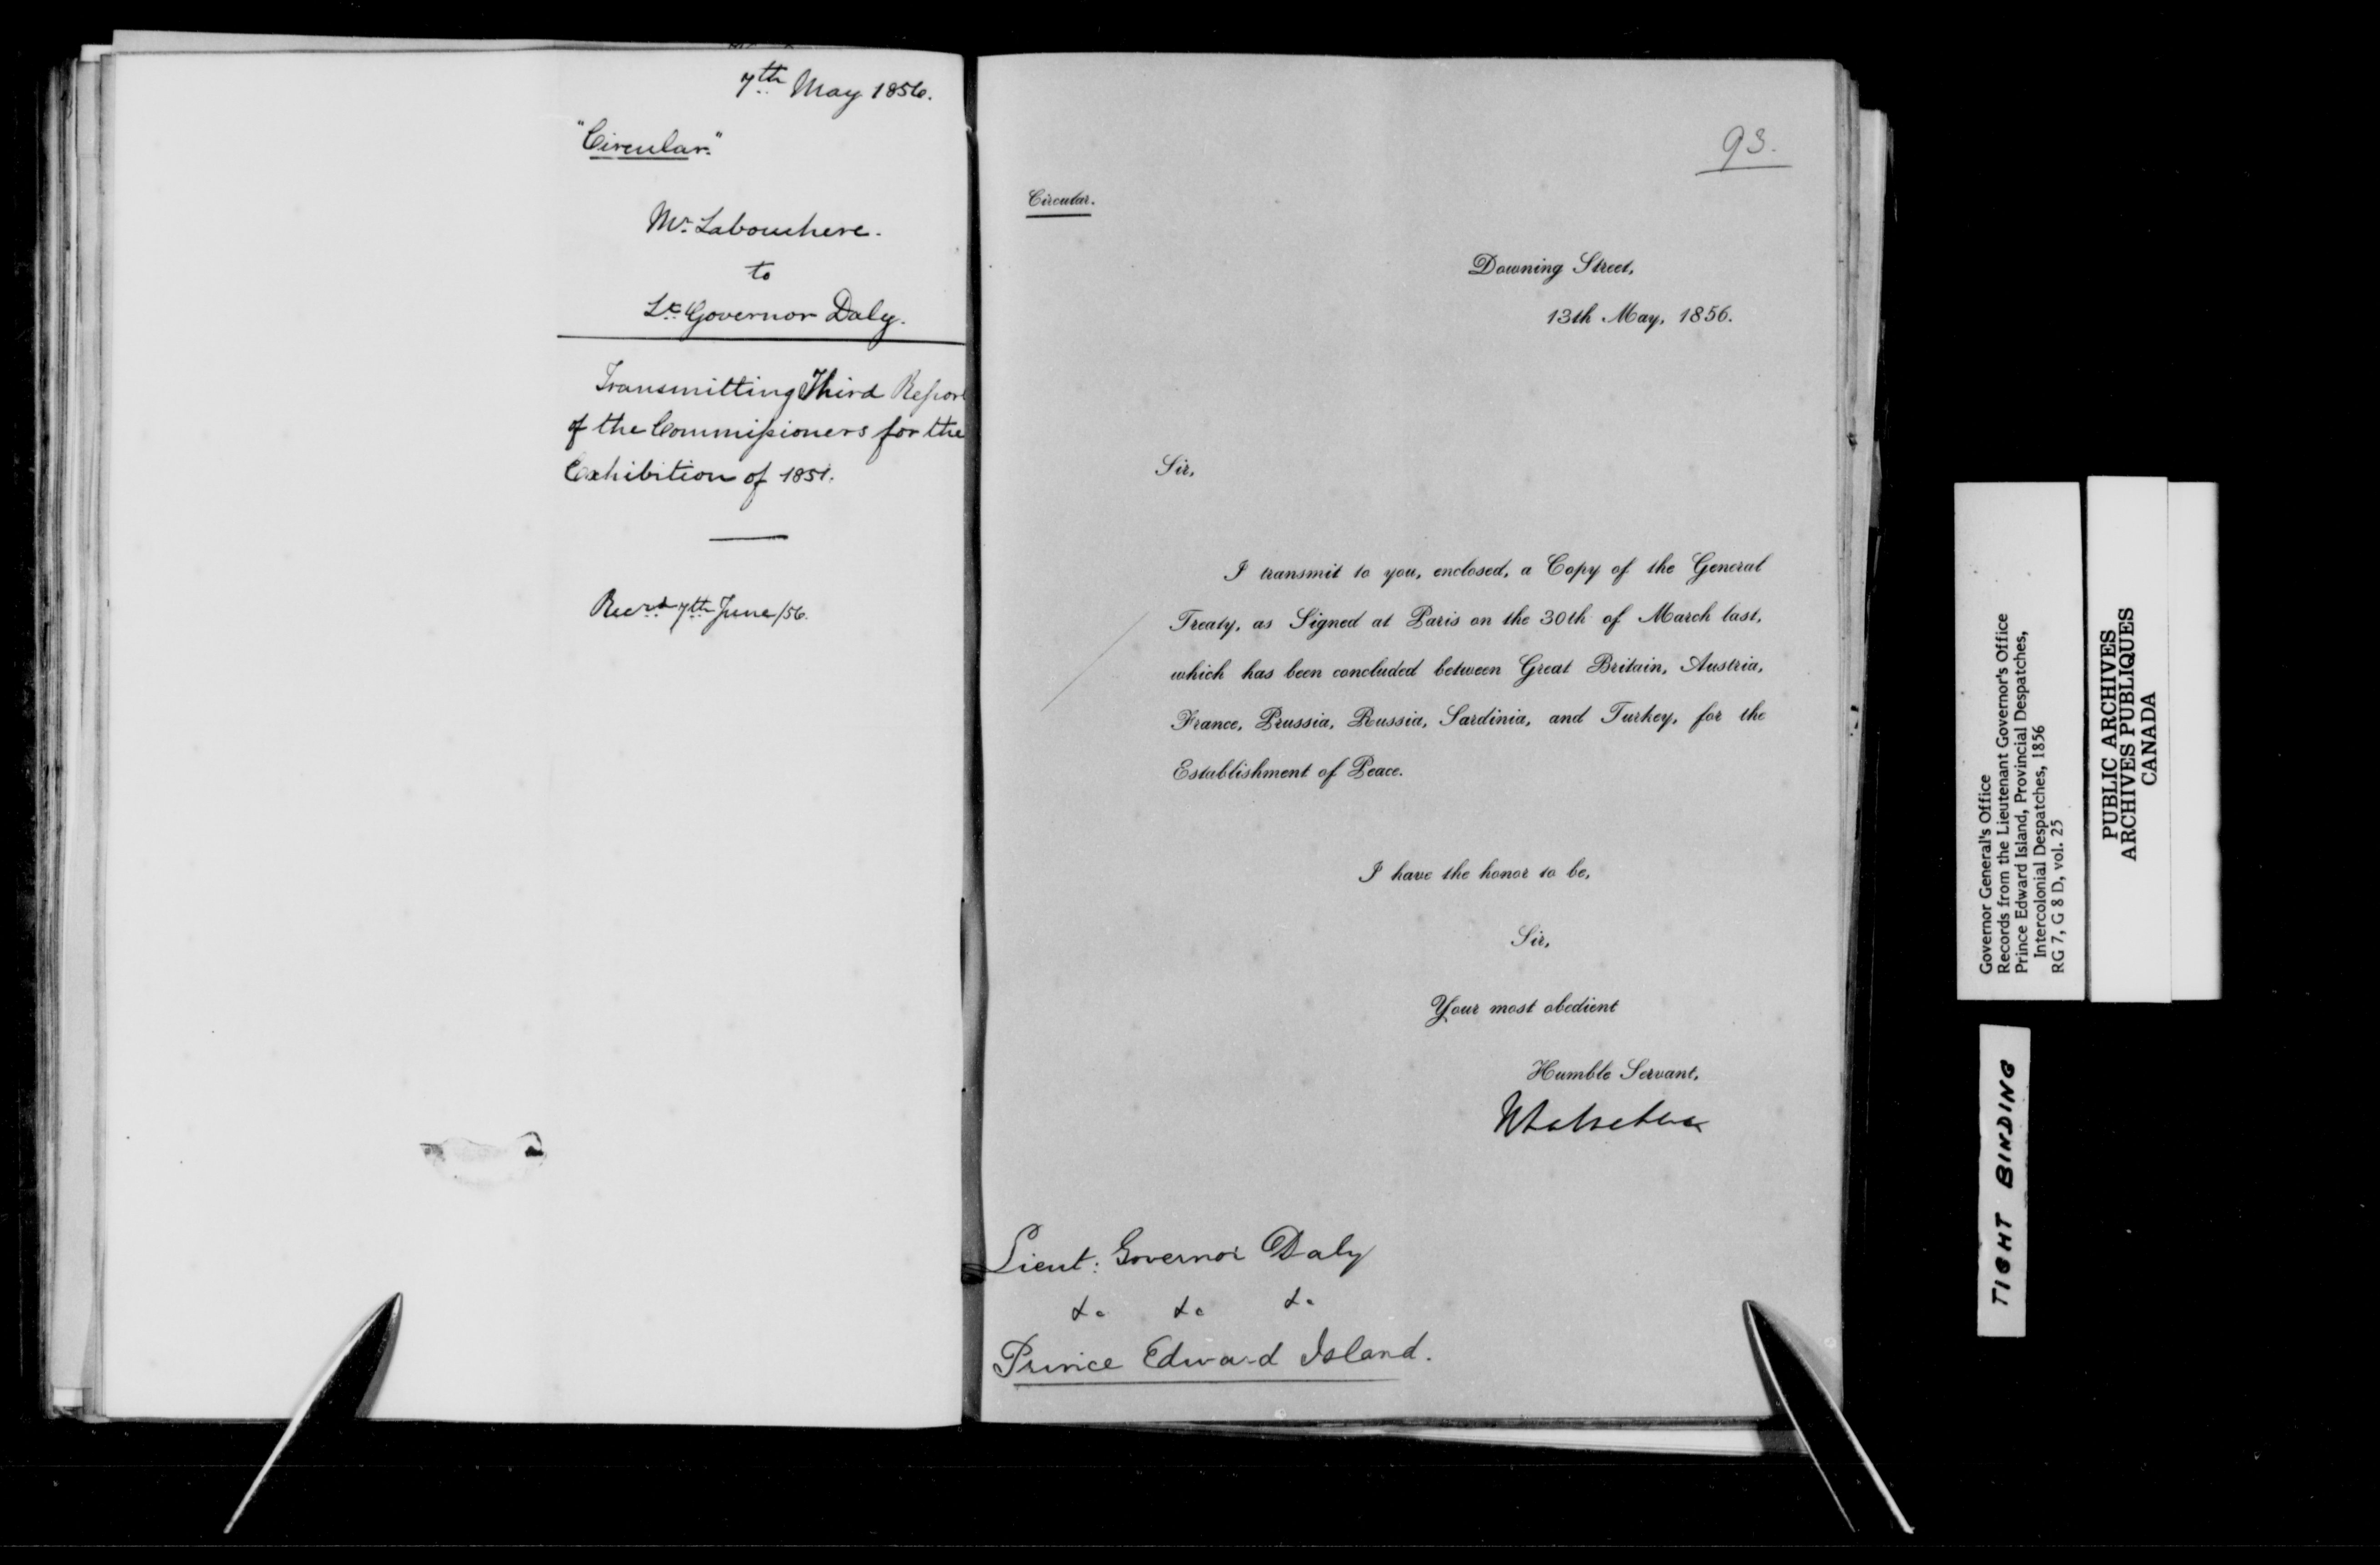 7th May 1856.
"Circular."
Mr. Labouchere.
to
Lt. Governor Daly.
Transmitting Third Report
of the Commissioners for the
Exhibition of 1851.
Recvd. 7th June/56.
93.
Circular.
Downing Street,
13th May, 1856.
Sir,
I transmit to you, enclosed, a Copy of the General
Treaty, as Signed at Paris on the 30th of March last,
which has been concluded between Great Britain, Austria,
France, Prussia, Russia, Sardinia, and Turkey, for the
Establishment of Peace.
I have the honor to be,
Sir,
Your most obedient
Humble Servant,
Lieut: Governor Daly
&c &c &c
Prince Edward Island.
Governor General's Office
Records from the Lieutenant Governor's Office
Prince Edward Island, Provincial Despatches,
Intercolonial Despatches, 1856
RG 7, G 8 D, vol. 25
PUBLIC ARCHIVES
ARCHIVES PUBLIQUES
CANADA
TIGHT BINDING